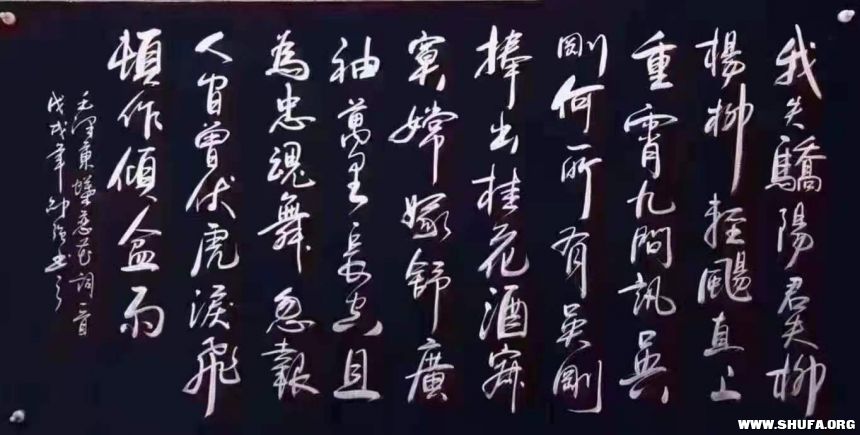 我失驕陽君失柳
楊柳輕颺直上
重霄九問訊吳
剛何所有吳剛
捧出桂花酒寂
寞嫦娥舒廣
袖萬里長空且
為忠魂舞忽報
人間曾伏虎淚飛
頓作傾盆雨
毛澤東蝶戀花詞一首
戊戌年書之
WWW.SHUFA.ORG